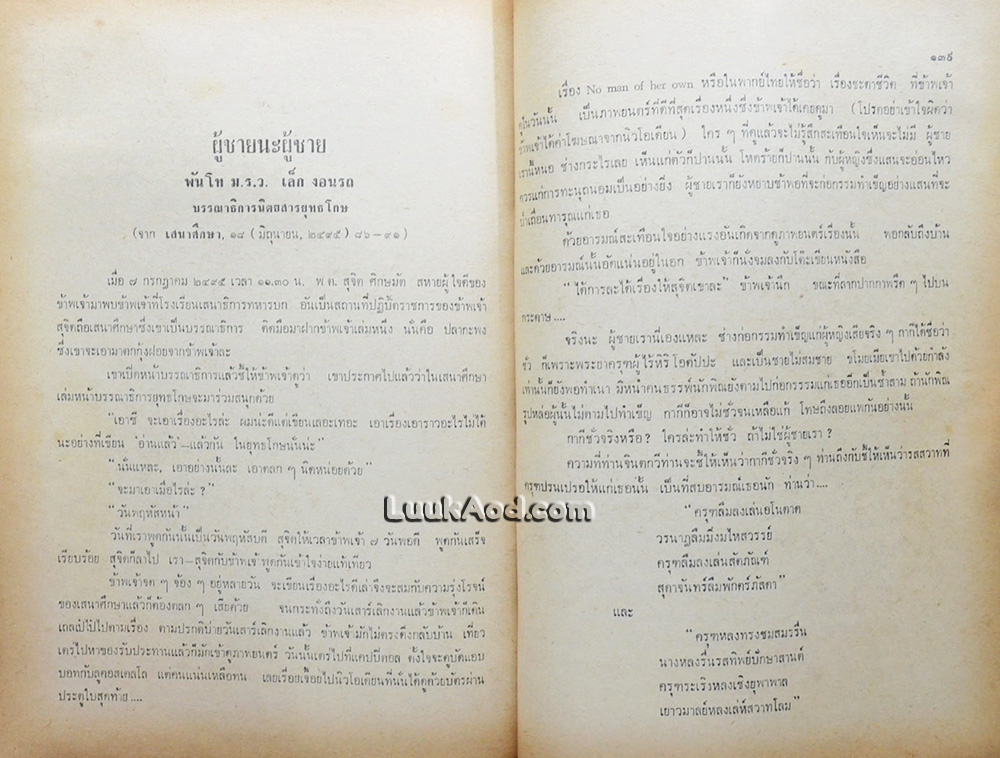 ผู้ชายนะผู้ชาย
พันโท ม.ร.ว. เล็ก งอนรถ
บรรณาธิการนิตยสารยุทธโกษ
(จาก เสนาศึกษา, ๑๘ (มิถุนายน, ๒๔๙๕) ๘๖–๙๑)
เมื่อ ๗ กรกฎาคม ๒๔๙๕ เวลา ๑๑.๓๐ น. พ.ต. สุจิต ศิกษมัต สหายผู้ใจดีของ
ข้าพเจ้ามาพบข้าพเจ้าที่โรงเรียนเสนาธิการทหารบก อันเป็นสถานที่ปฏิบัติราชการของข้าพเจ้า
สุจิตถือเสนาศึกษาซึ่งเขาเป็นบรรณาธิการ ติดมือมาฝากข้าพเจ้าเล่มหนึ่ง นั่นคือ ปลากะพง
ซึ่งเขาจะเอามาตกกุ้งฝอยจากข้าพเจ้าละ
เขาเปิดหน้าบรรณาธิการแล้วชี้ให้ข้าพเจ้าดูว่า เขาประกาศไปแล้วว่าในเสนาศึกษา
เล่มหน้าบรรณาธิการยุทธโกษจะมาร่วมสนุกด้วย
“เอาซี จะเอาเรื่องอะไรล่ะ ผมน่ะดีแต่เขียนเลอะเทอะ เอาเรื่องเอาราวอะไรไม่ได้
นะอย่างที่เขียน ‘อ่านแล้ว’–แล้วกัน ในยุทธโกษนั่นน่ะ”
“นั่นแหละ, เอาอย่างนั้นละ เอาตลก ๆ นิดหน่อยด้วย”
“จะมาเอาเมื่อไรล่ะ ?”
“วันพฤหัสหน้า”
วันที่เราพูดกันนั้นเป็นวันพฤหัสบดี สุจิตให้เวลาข้าพเจ้า ๗ วันพอดี พูดกันเสร็จ
เรียบร้อย สุจิตก็ลาไป เรา–สุจิตกับข้าพเจ้าพูดกันเข้าใจง่ายแท้เทียว
ข้าพเจ้าจด ๆ จ้อง ๆ อยู่หลายวัน จะเขียนเรื่องอะไรดีเล่าจึงจะสมกับความรุ่งโรจน์
ของเสนาศึกษาแล้วก็ต้องตลก ๆ เสียด้วย จนกระทั่งถึงวันเสาร์เลิกงานแล้วข้าพเจ้าก็เดิน
เถลไปตามเรื่อง ตามปรกติบ่ายวันเสาร์เลิกงานแล้ว ข้าพเจ้ามักไม่ตรงดิ่งกลับบ้าน เที่ยว
เตร่ไปหาของรับประทานแล้วก็มักเข้าดูภาพยนตร์ วันนั้นเตร่ไปที่แคปปิตอล ตั้งใจจะดูบัดแอบ
บอทกับลูคอสเตลโล แต่คนแน่นเหลือทน เลยเรื่อยเจื้อยไปนิวโอเดียนที่นั่นได้ดูด้วยบัตรผ่าน
ประตูใบสุดท้าย....
๑๓๙
เรื่อง No man of her own หรือในพากย์ไทยให้ชื่อว่า เรื่องชะตาชีวิต ที่ข้าพเจ้า
ดูในวันนั้น เป็นภาพยนตร์ที่ดีที่สุดเรื่องหนึ่งซึ่งข้าพเจ้าได้เคยดูมา (โปรดอย่าเข้าใจผิดว่า
ข้าพเจ้าได้ค่าโฆษณาจากนิวโอเดียน) ใคร ๆ ที่ดูแล้วจะไม่รู้สึกสะเทือนใจเห็นจะไม่มี ผู้ชาย
เรานี้หนอ ช่างกระไรเลย เห็นแก่ตัวก็ปานนั้น โหดร้ายก็ปานนั้น กับผู้หญิงซึ่งแสนจะอ่อนไหว
ควรแก่การทะนุถนอมเป็นอย่างยิ่ง ผู้ชายเราก็ยังหยาบช้าพอที่จะก่อกรรมทำเข็ญอย่างแสนที่จะ
ป่าเถื่อนทารุณแก่เธอ
ด้วยอารมณ์สะเทือนใจอย่างแรงอันเกิดจากดูภาพยนตร์เรื่องนั้น พอกลับถึงบ้าน
และด้วยอารมณ์นั้นอัดแน่นอยู่ในอก ข้าพเจ้าก็นั่งจมลงกับโต๊ะเขียนหนังสือ
“ได้การละได้เรื่องให้สุจิตเขาละ” ข้าพเจ้านึก ขณะที่ลากปากกาพรืด ๆ ไปบน
กระดาษ....
จริงนะ ผู้ชายเรานี่เองแหละ ช่างก่อกรรมทำเข็ญแก่ผู้หญิงเสียจริง ๆ กากีได้ชื่อว่า
ชั่ว ก็เพราะพระยาครุฑผู้ไร้หิริโอตัปปะ และเป็นชายไม่สมชาย ขโมยเมียเขาไปด้วยกำลัง
เท่านั้นก็ยังพอทำเนา มิหนำคนธรรพ์นักพิณยังตามไปก่อกรรมแก่เธออีกเป็นซ้ำสาม ถ้านักพิณ
รูปหล่อผู้นั้นไม่ตามไปทำเข็ญ กากีก็อาจไม่ชั่วจนเหลือแก้ โทษถึงลอยแพกันอย่างนั้น
กากีชั่วจริงหรือ? ใครล่ะทำให้ชั่ว ถ้าไม่ใช่ผู้ชายเรา?
ความที่ท่านจินตกวีท่านจะชี้ให้เห็นว่ากากีชั่วจริง ๆ ท่านถึงกับชี้ให้เห็นว่ารสสวาทที่
ครุฑปรนเปรอให้แก่เธอนั้น เป็นที่สบอารมณ์เธอนัก ท่านว่า....
“ครุฑลืมลงเล่นอโนดาต
วรนาฏลืมมิ่งมไหสวรรย์
ครุฑลืมลงเล่นสัตภัณฑ์
สุดาจันทร์ลืมพักตร์ภัสดา”
และ
“ครุฑหลงทรงชมสมรรื่น
นางหลงรื่นรสทิพย์ปักษาสานต์
ครุฑระเริงหลงเชิงยุพาพาล
เยาวมาลย์หลงเล่ห์สวาทโลม”
LuukAod.com